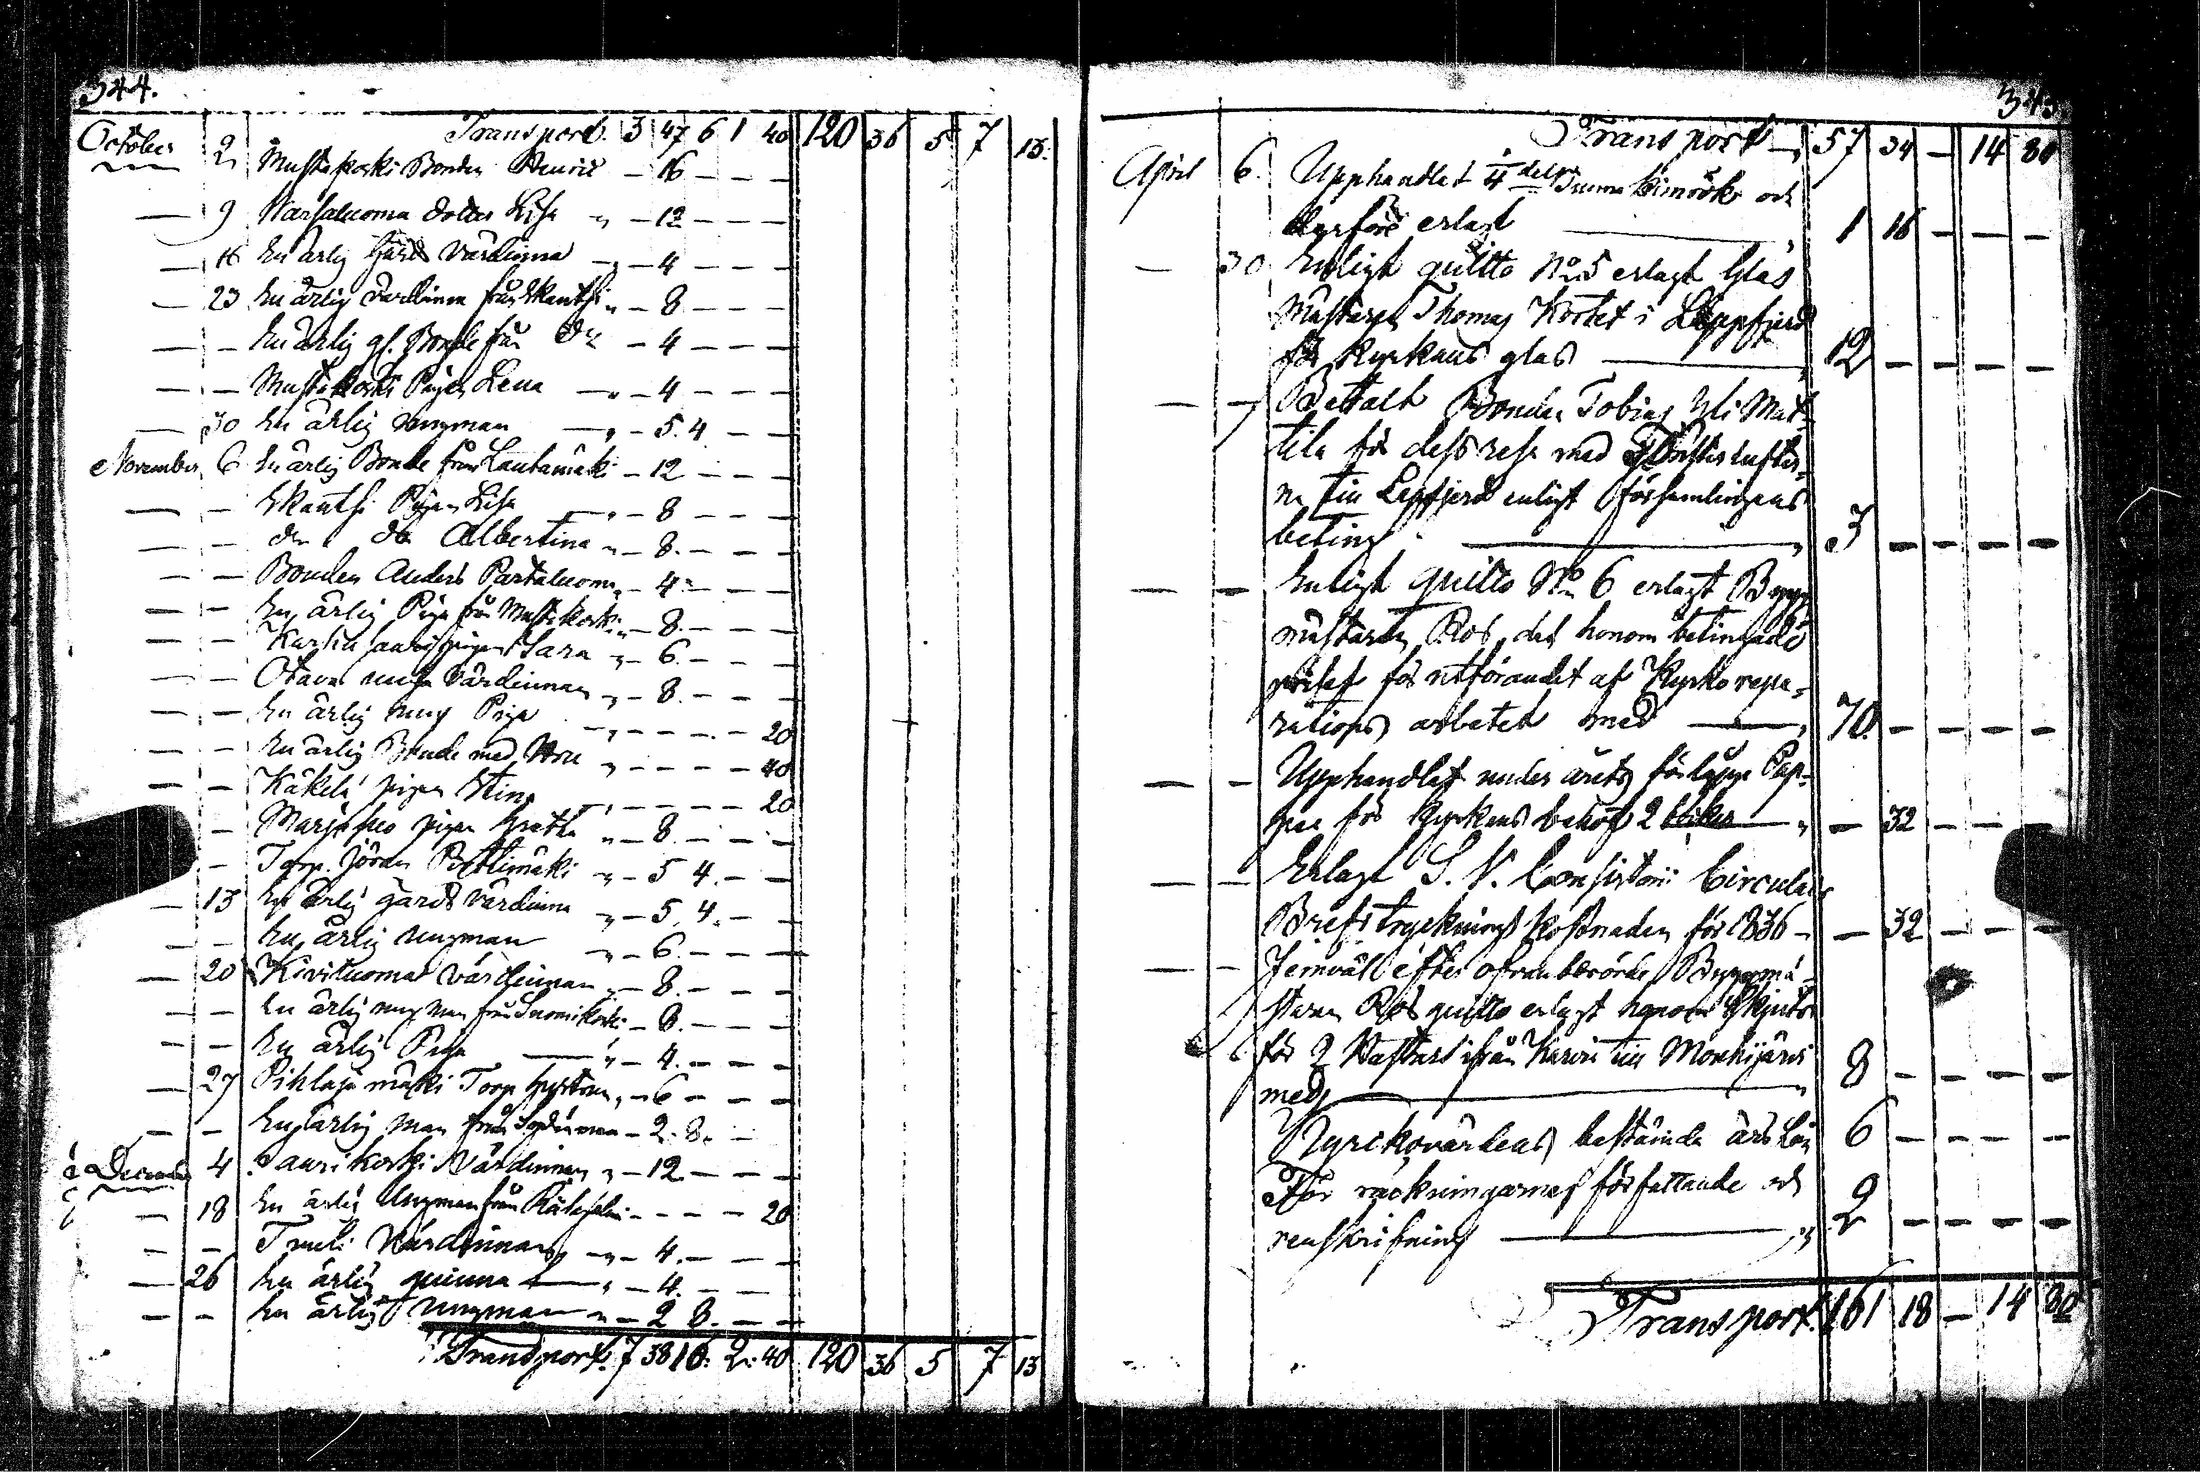 344.
Transport. 3 47 6 1 40 120 36 5 7 13.
October 2 Mustakoski Bonden Henric — 16 — — —
— 9 Narfaluoma dotter Lisa " — 12 — — —
— 16 En ärlig Gårds värdinna " — 4 — — —
— 23 En ärlig Värdinna från Skantsi " — 8 — — —
— — En ärlig gl. Bonde från do — 4 — — —
— — Mustakoski Pigan Lena — " — 4 — — —
— 30 En ärlig ungman — " — 5. 4 — —
November 6 En ärlig Bonde från Lautamäki — 12 — — —
— — Skantsi Pigan Lisa — " — 8 — — —
— — do do Albertina " — 8. — — —
— — Bonden Anders Partaluoma " — 4 — — —
— — En ärlig Piga från Mustakoski " — 8. — — —
— — Karhu pigan Sara " — 6. — — —
— — Otava unga Värdinnan " — 8. — — —
— — En ärlig ung Piga " — — — — 20
— — En ärlig Bonde med Hustru " — — — — 40
— — Käkelä pigan Stina " — — — — 20
— Marjapuo pigan Gretha " — 8. — — —
— Torp. Jöran Peltimäki " — 5 4. — —
— 13 En ärlig gårds Värdinna " — 5. 4. — —
— — En ärlig ungman " — 6. — — —
— 20 Kiviluoma Värdinnan " — 8. — — —
— — En ärlig ungman från Suomikoski — 8. — — —
— — En ärlig Piga — " — 4. — — —
— 27 Pihlajamäki Torp. Gustava " — 6 — — —
— — En ärlig man från — 2. 8. —
December 4 Laurikoski Värdinnan " — 12 — — —
— 18 En ärlig Ungman från — — — — 20
— — Värdinnan " — 4. — — —
— 26 En ärlig quinna — " — 4. — —
— — En ärlig Ungman " — 2 8. — —
Transport. 7 38 16. 2. 40 120 36 5 7 13
345
Transport — 57 34 — 14 80
April 6. Upphandlat 4 delns Tunna Kimröke och
derföre erlagt — 1 16 — — —
— 30 Enligt quitto No 5 erlagt Glas
mästaren Thomas Kortet i Lappfjerd
för Kyrkans glas — 12 — — — —
— — Betalt Bonden Tobias Yli Mat-
tila för dess resa med
till Lappfjerd enligt församlingens
beting — 3 — — — —
— — Enligt quitto No 6 erlagt Bygg
mästaren Ros, det honom betingade
priset för utförandet af Kyrko repa-
rations arbetet med — 70. — — — —
— — Upphandlat under årets förlopp Pap-
per för Kyrkans behof 2 böcker — " — 32 — — —
— — Erlagt S. V. Consistorii Circulair
Brefs tryckningskostnaden för 1836 — — 32 — — —
— — Jemväl efter ofvanberörde Byggmä-
staren Ros quitto erlagt honom Skjuts
för 2 Hästar ifrån Karvia till Mouhijärvi
med — 8 — — — —
Kyrckovärdens bestämda årslön 6 — — — —
För räckningarnes författande och
renskrifning — " 2 — — — —
Transport. 161 18 — 14 80